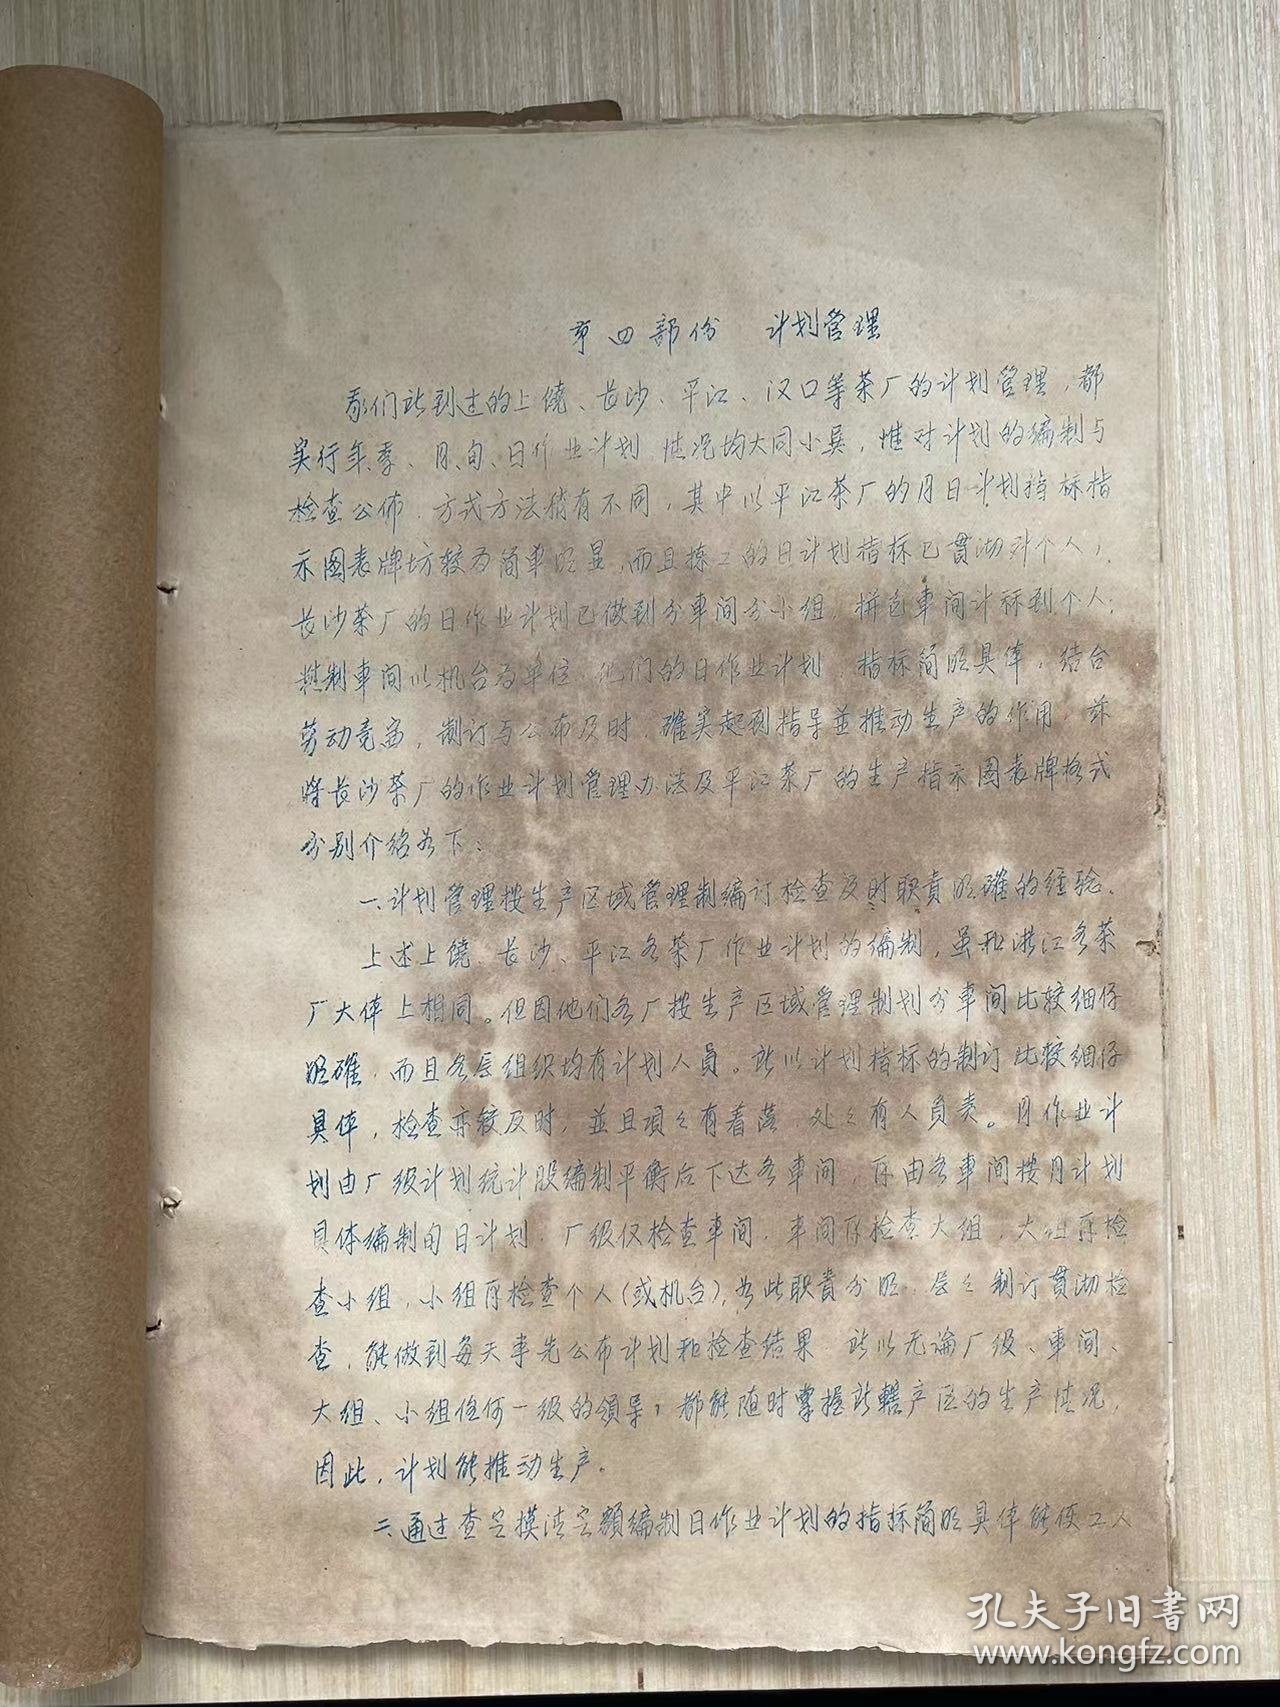 第四部份　计划管理
我们所到过的上饶、长沙、平江、汉口等茶厂的计划管理，都
实行年、季、月、旬、日作业计划 情况均大同小异，惟对计划的编制与
检查公佈．方式方法稍有不同，其中以平江茶厂的月日计划指标指
示图表牌坊较为简单明显，而且拣工的日计划指标已贯彻到个人，
长沙茶厂的日作业计划已做到分车间分小组，拼包车间计标到个人；
制车间以机台为单位 他们的日作业计划，指标简明具体，结合
劳动竞赛，制订与公布及时，确实起到指导並推动生产的作用，兹
将长沙茶厂的作业计划管理办法及平江茶厂的生产指示图表牌格式
分别介绍如下：
一、计划管理按生产区域管理制编订检查及时职责明确的经验、
上述上饶、长沙、平江各茶厂作业计划的编制，虽和浙江各茶
厂大体上相同。但因他们各厂按生产区域管理制划分车间比较细仔
明确，而且各层组织均有计划人员。所以计划指标的制订比较细仔
具体，检查亦较及时，並且项々有着落，处々有人负责。月作业计
划由厂级计划统计股编制平衡后下达各车间，再由各车间按月计划
具体编制旬日计划．厂级仅检查车间，车间再检查大组，大组再检
查小组，小组再检查个人（或机台），如此职责分明，层々制订贯彻检
查，能做到每天事先公布计划和检查结果 所以无论厂级、车间、
大组、小组任何一级的领导，都能随时掌握所辖产区的生产情况，
因此，计划能推动生产。
二、通过查定摸清定额编制日作业计划的指标简明具体能使工人
孔夫子旧书网
www.kongfz.com